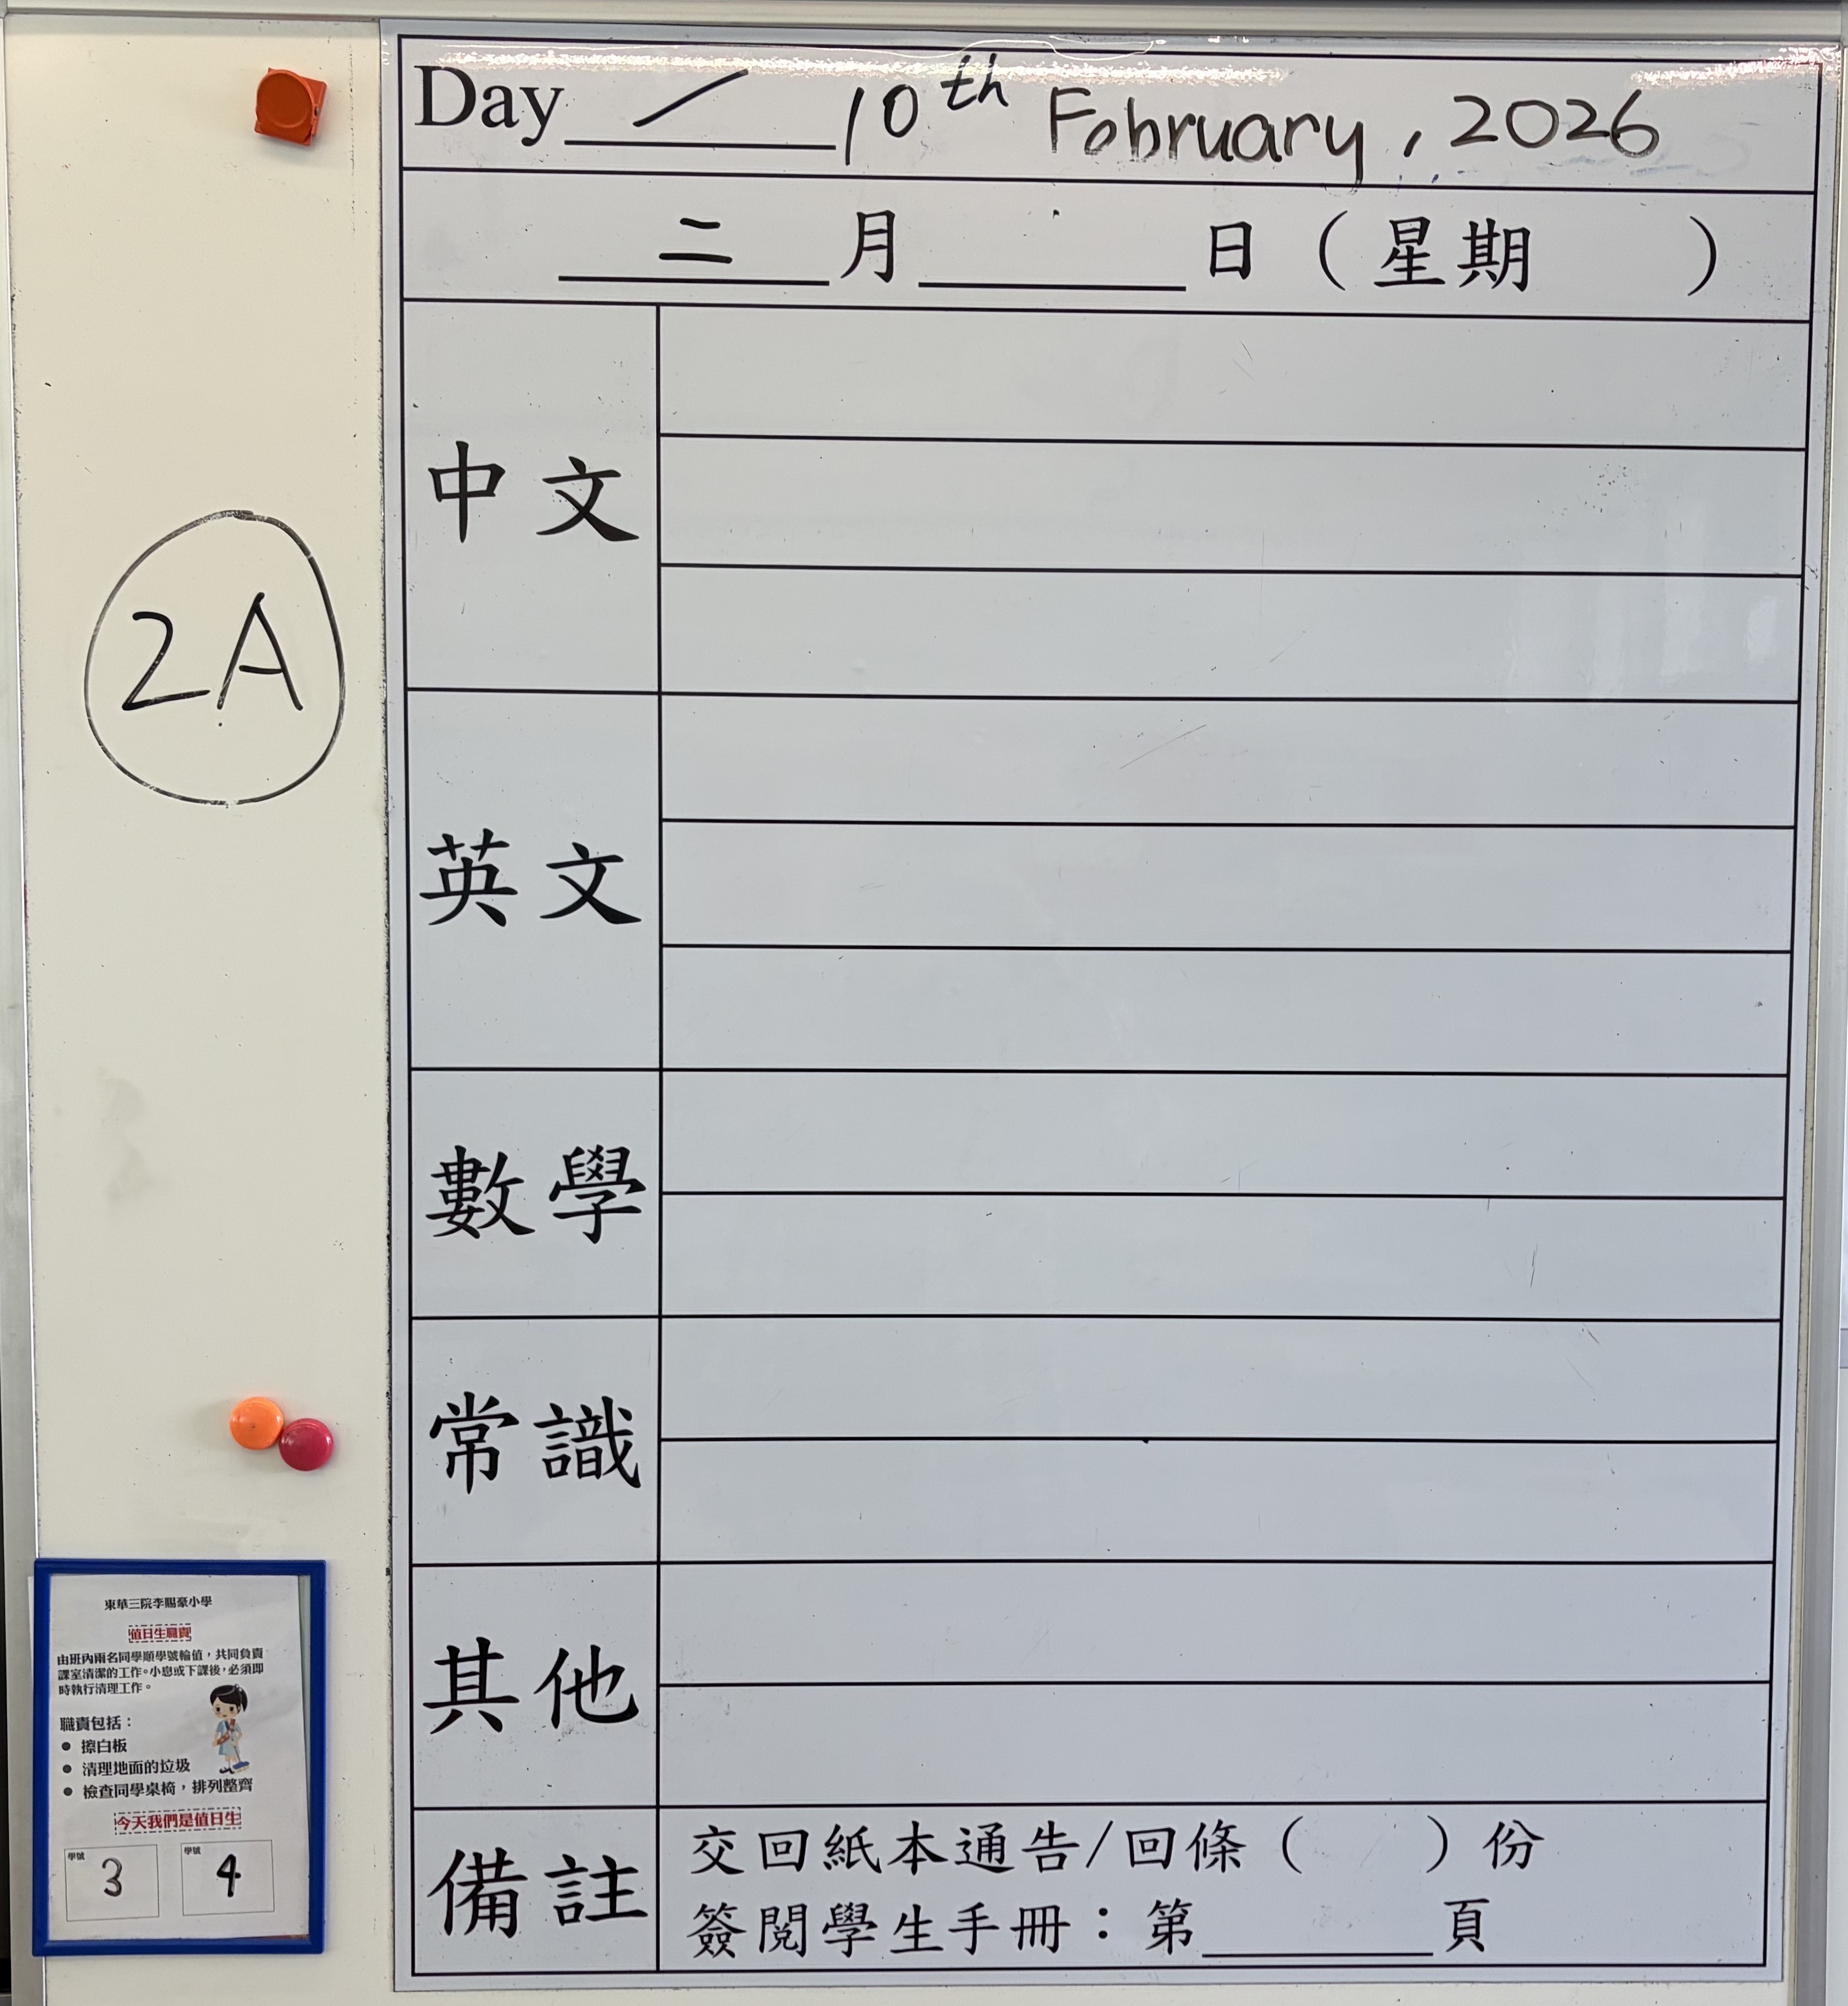 Day / 10th February, 2026
二 月 日（星期 ）
中文
2A
英文
數學
常識
其他
備註
交回紙本通告/回條（ ）份
簽閱學生手冊：第 頁
東華三院李賜豪小學
值日生職責
由班內兩名同學順學號輪值，共同負責
課室清潔的工作。小息或下課後，必須即
時執行清理工作。
職責包括：
● 擦白板
● 清理地面的垃圾
● 檢查同學桌椅，排列整齊
今天我們是值日生
學號 3 學號 4